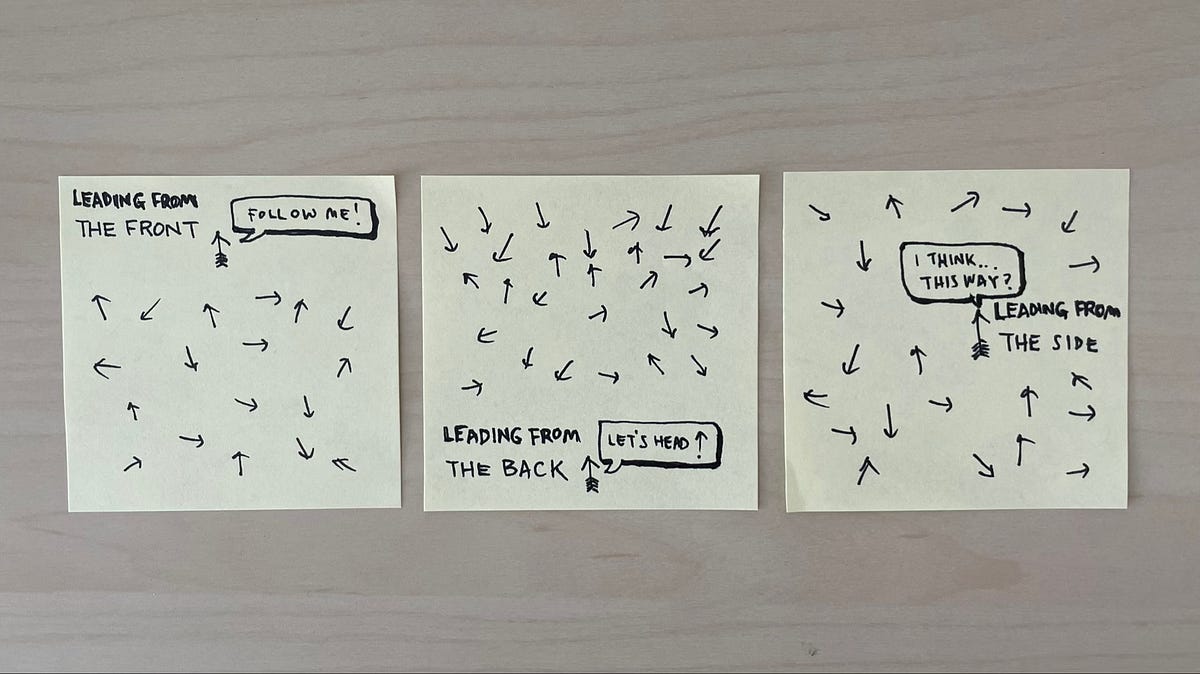 LEADING FROM
THE FRONT
FOLLOW ME!
LEADING FROM
THE BACK
LET'S HEAD ↑
I THINK...
THIS WAY?
LEADING FROM
THE SIDE